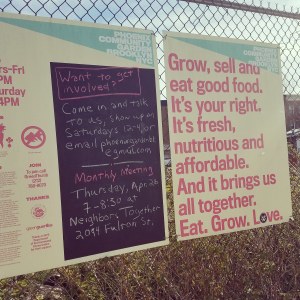 PHOENIX
COMMUNITY
GARDEN
BROOKLYN
NYC
Want to get
involved?
Come in and talk
to us, show up on
Saturdays
email
gmail.com
Monthly Meeting
Thursday, Apr
7-8:30 at
Neighbors Together
2094 Fulton St.
rs-Fri
PM
turday
4PM
JOIN
THANKS
Grow, sell and
eat good food.
It's your right.
It's fresh,
nutritious and
affordable.
And it brings us
all together.
Eat. Grow. Love.